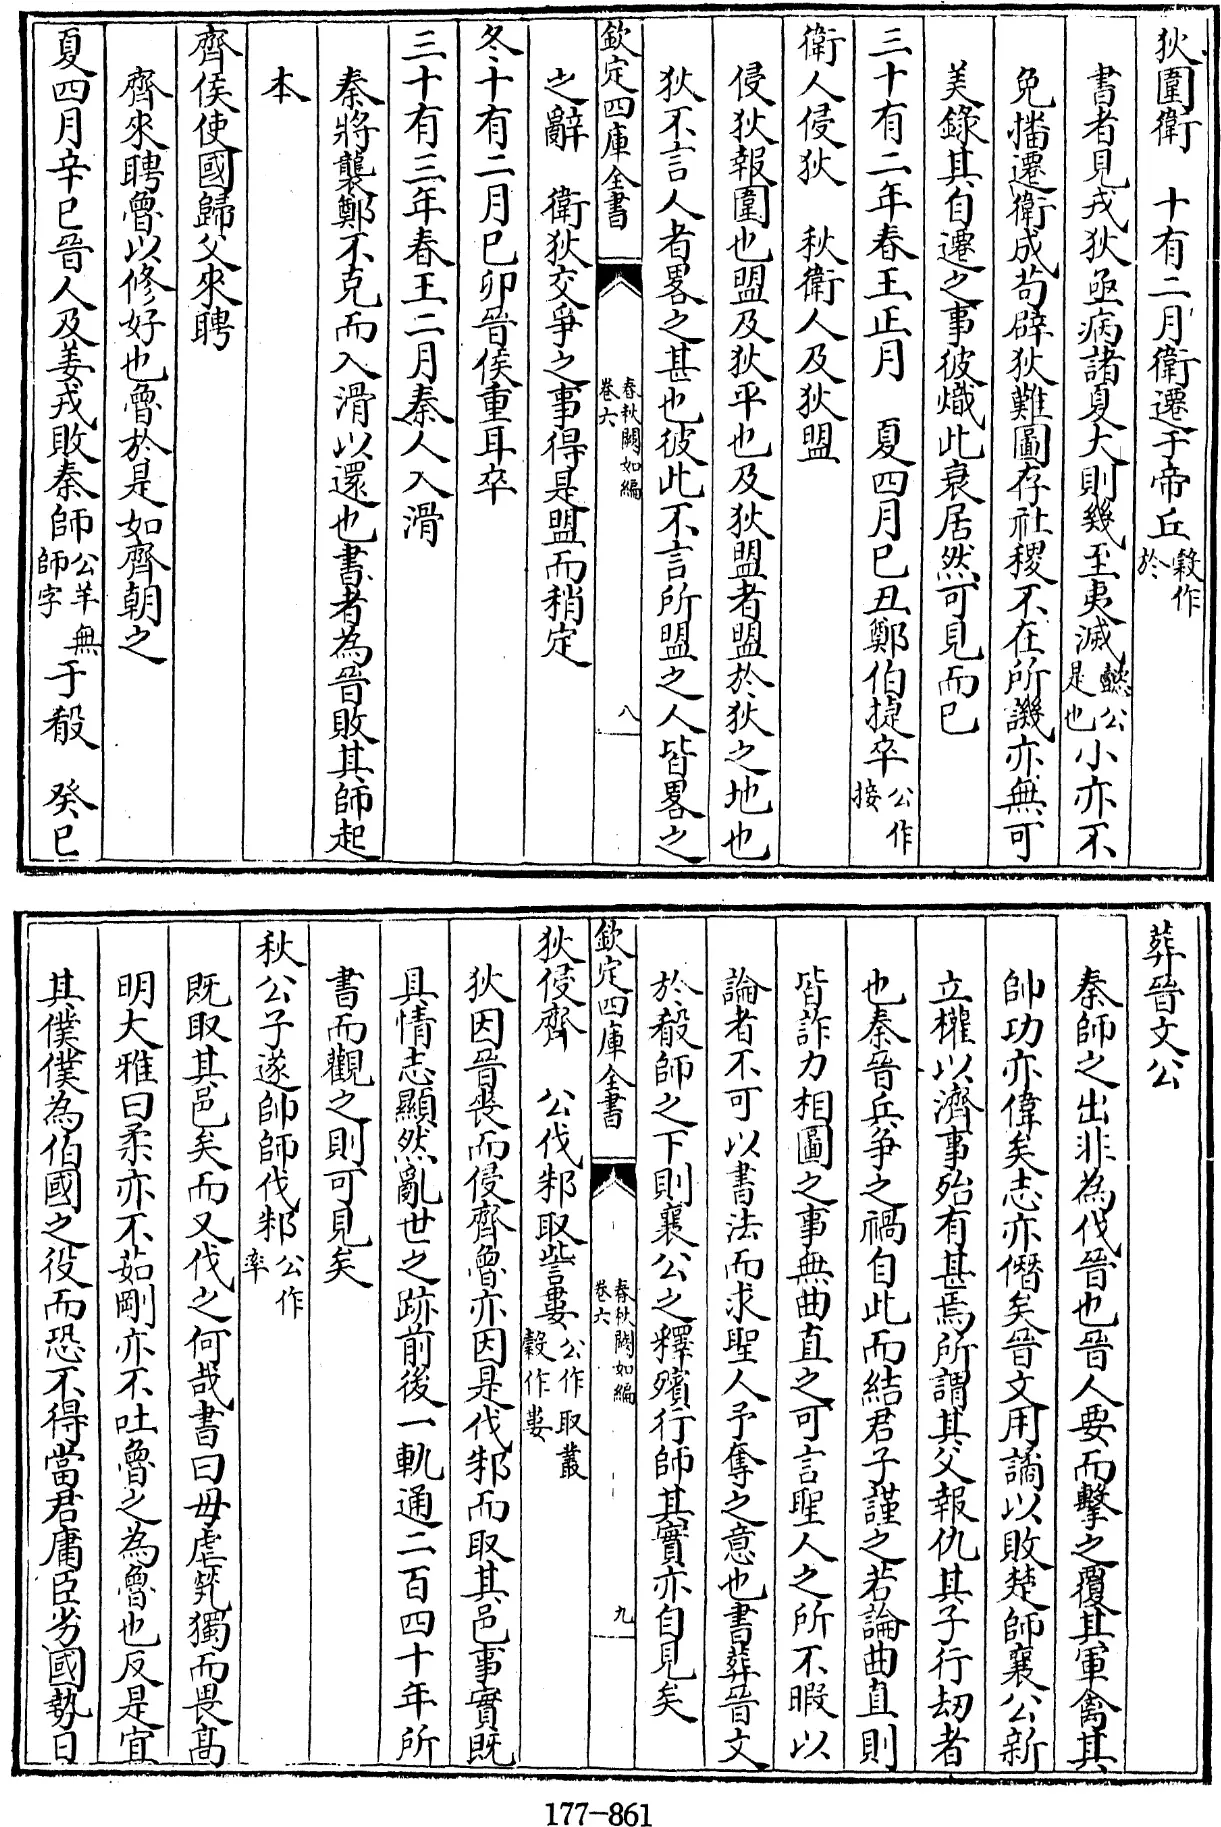 狄圍衛　十有二月衛遷于帝丘穀作於
書者見戎狄亟病諸夏大則幾至夷滅懿公是也小亦不
免播遷衛成苟辟狄難圖存社稷不在所譏亦無可
美錄其自遷之事彼熾此衰居然可見而已
三十有二年春王正月　夏四月已丑鄭伯捷卒公作接
衛人侵狄　秋衛人及狄盟
侵狄報圍也盟及狄平也及狄盟者盟於狄之地也
狄不言人者畧之甚也彼此不言所盟之人皆畧之
欽定四庫全書　春秋闕如編卷六　八
之辭　衛狄交爭之事得是盟而稍定
冬十有二月已卯晉侯重耳卒
三十有三年春王二月秦人入滑
秦將襲鄭不克而入滑以還也書者為晉敗其師起
本
齊侯使國歸父來聘
齊來聘魯以修好也魯於是如齊朝之
夏四月辛已晉人及姜戎敗秦師公羊無師字于殽　癸已
葬晉文公
秦師之出非為伐晉也晉人要而擊之覆其軍禽其
帥功亦偉矣志亦僭矣晉文用譎以敗楚師襄公新
立權以濟事殆有甚焉所謂其父報仇其子行刼者
也秦晉兵爭之禍自此而結君子謹之若論曲直則
皆詐力相圖之事無曲直之可言聖人之所不暇以
論者不可以書法而求聖人予奪之意也書葬晉文
於殽師之下則襄公之釋殯行師其實亦自見矣
欽定四庫全書　春秋闕如編卷六　九
狄侵齊　公伐邾取訾婁公作取叢穀作婁
狄因晉喪而侵齊魯亦因是伐邾而取其邑事實既
具情志顯然亂世之跡前後一軌通二百四十年所
書而觀之則可見矣
秋公子遂帥師伐邾公作率
既取其邑矣而又伐之何哉書曰毋虐煢獨而畏高
明大雅曰柔亦不茹剛亦不吐魯之為魯也反是宜
其僕僕為伯國之役而恐不得當君庸臣劣國勢日
177-861